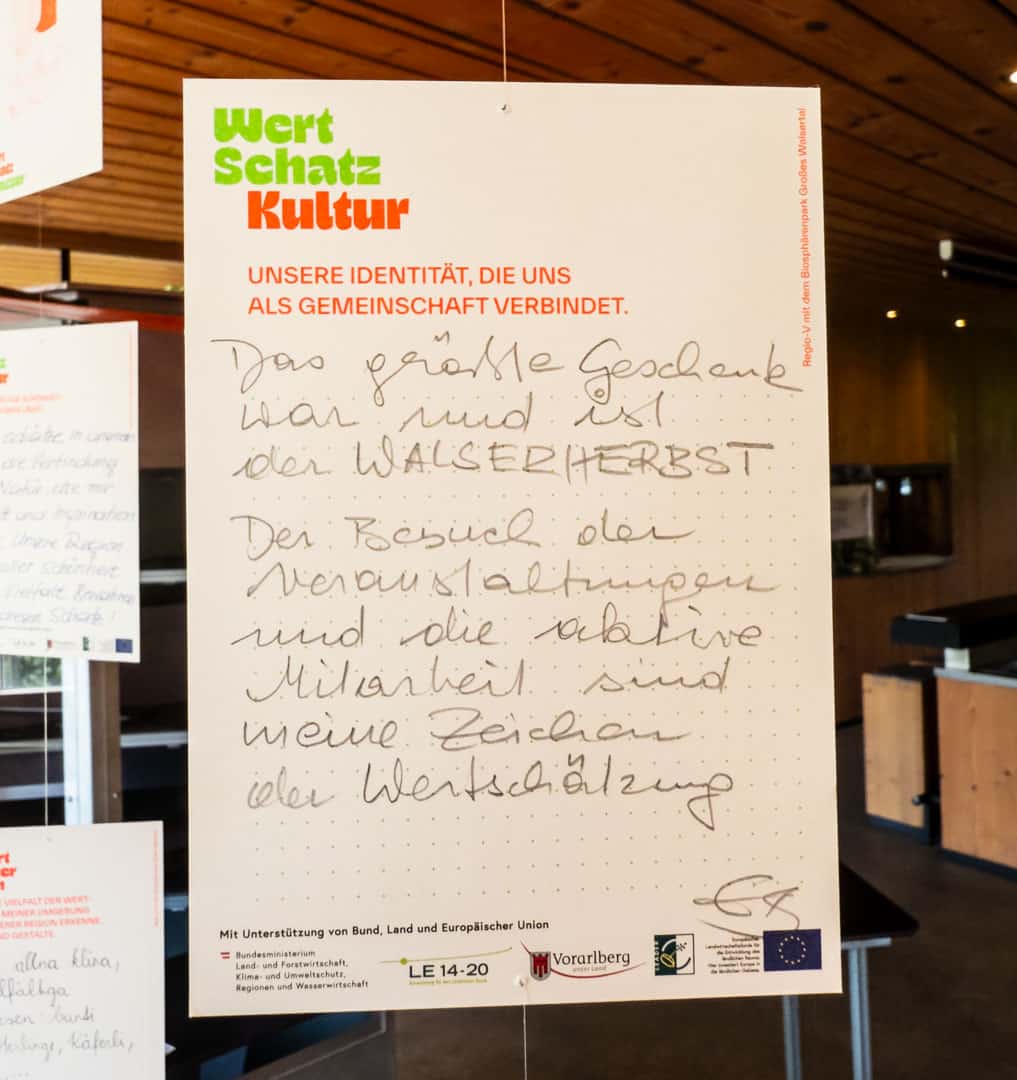 Wert
Schatz
Kultur
UNSERE IDENTITÄT, DIE UNS
ALS GEMEINSCHAFT VERBINDET.
Regio-V mit dem Biosphärenpark Großes Walsertal
Das größte Geschenk
war und ist
der WALSERHERBST
Der Besuch der
Veranstaltungen
und die aktive
Mitarbeit sind
meine Zeichen
der Wertschätzung
Mit Unterstützung von Bund, Land und Europäischer Union
Bundesministerium
Land- und Forstwirtschaft,
Klima- und Umweltschutz,
Regionen und Wasserwirtschaft
LE 14-20
Vorarlberg
unser Land
LEADER
Europäischer
Landwirtschaftsfonds für
die Entwicklung des
ländlichen Raums:
Hier investiert Europa in
die ländlichen Gebiete.
die Verbindung
Unsere Region
VIELFALT DER WERT-
MEINER UMGEBUNG
REGION ERKENNE
GESTALTE.
allna klina,
bunti
Käferli,